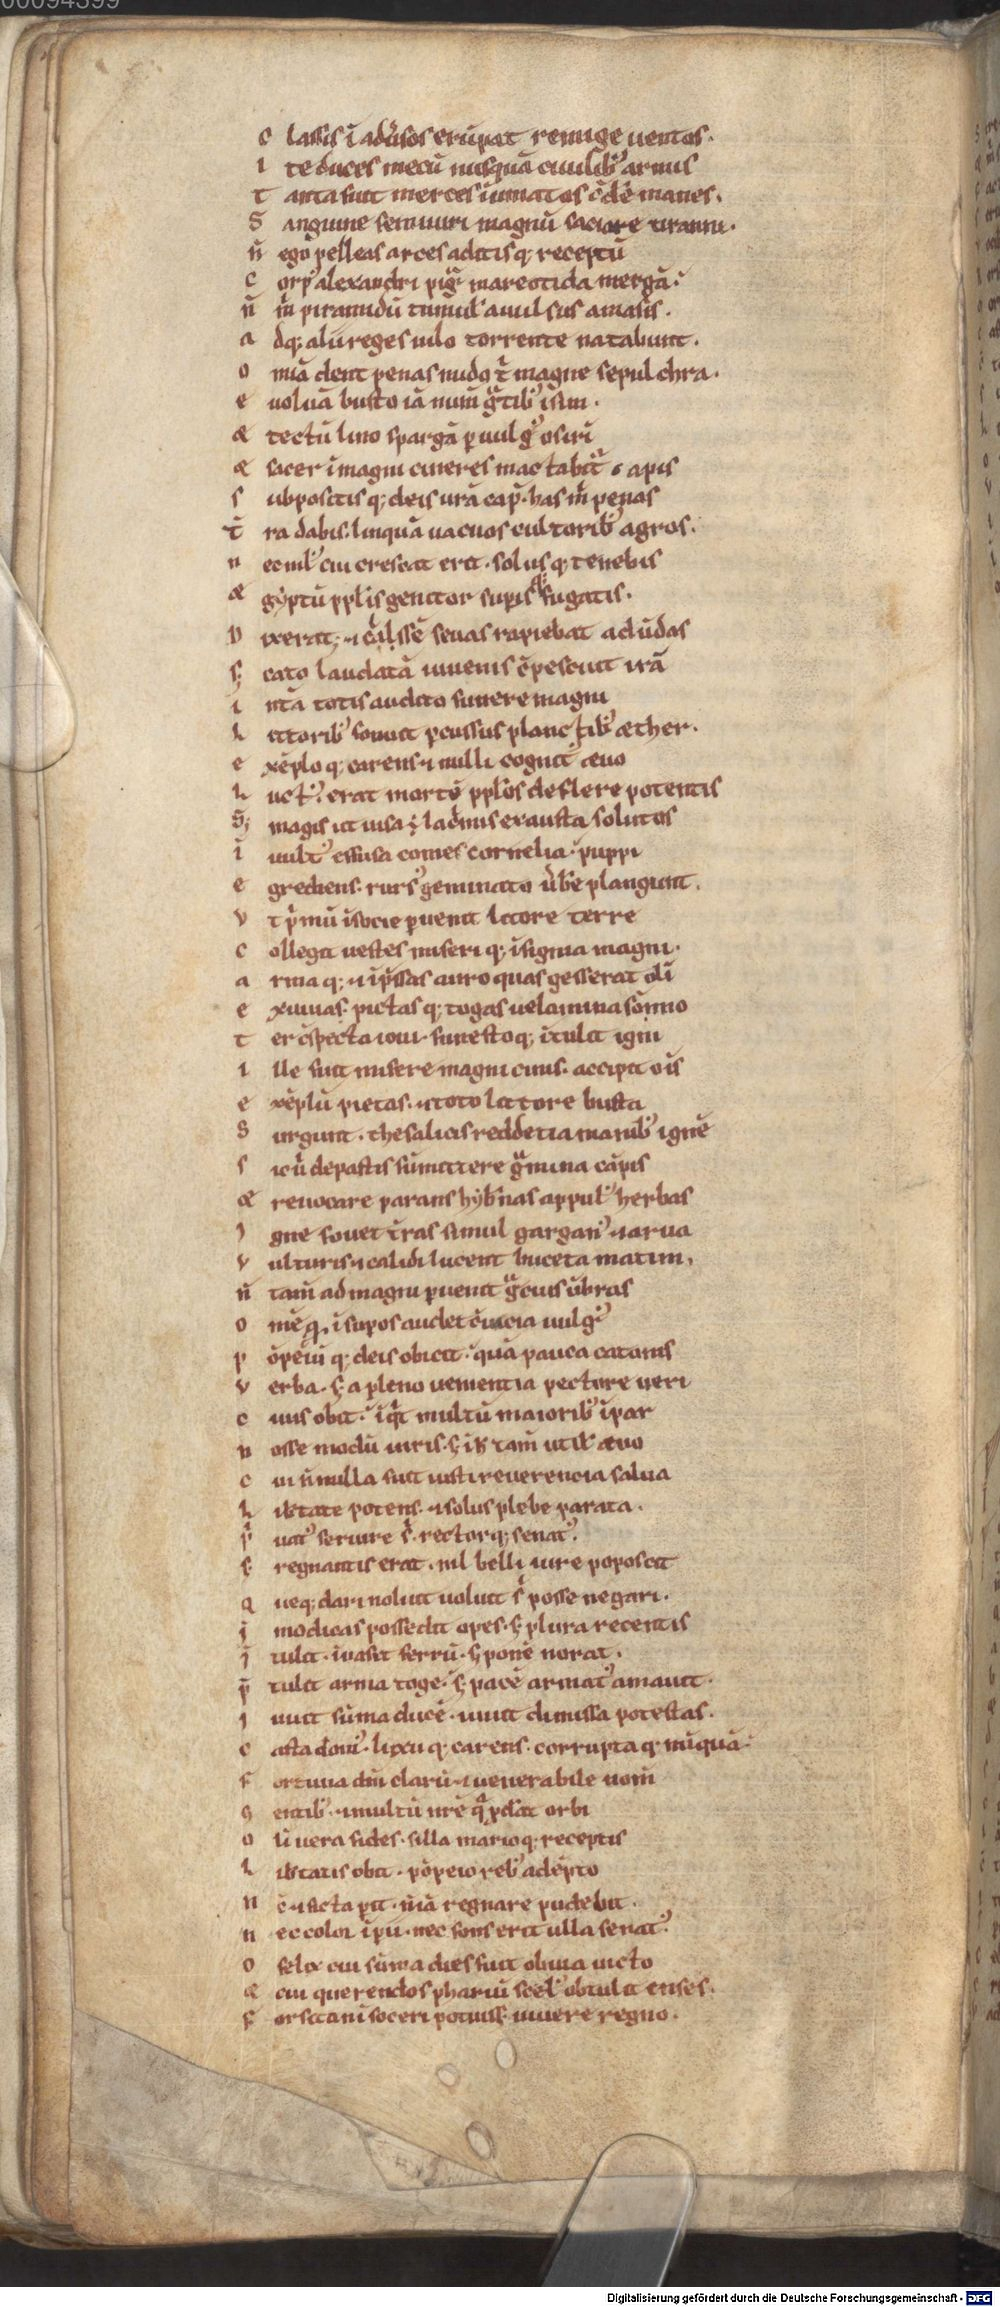 00094399
C lassis ī adūsos erūpat remige uentos.
I te duces mecū nusquā ciuilib᷒ armis
T anta fuit merces īhumatos c̄dē manes.
S anguine semiuiri magnū saciare tiranni.
N̄ ego pelleas arces aditisq; receptū
C orp᷒ alexandri pigͣ mareotida mergā.
N̄ m̄ piramidū tumul᷒ auulsus amasis.
A dq; alii reges nilo torrente natabunt.
O mīa dent penas nudo t̄ magne sepulchra.
E uoluā busto iā num̄ gͣtib᷒ isim.
& tectū lino spargā p uulg᷒ osiri
& sacer ī magni cineres mactabit᷒ apis
S ubpositisq; deis urā cap᷒. has m̄ penas
T̄ ra dabis. linquā uacuos cultorib᷒ agros.
N ec nil᷒ cui crescat erit. solusq; tenebis
Æ gyptū pplīs genitor supisq; fugatis.
D ixerat; ⁊ cͣlssē seuas rapiebat ad ūdas
S; cato laudatā iuuenis c̄pescuit irā
I ntā totis audito funere magni
L ittorib᷒ sonuit pcussus planctib᷒ æther.
E xēplo q; carens ⁊ nulli cognit᷒ æuo
L uct᷒. erat mortē pplōs deflere potentis
S; magis ut uisa ē lac̄mis exausta solutos
I nult᷒ effusa comes cornelia. puppi
E grediens. rurs᷒ geminato ūbē plangunt.
V t pͥmū īsocie puenit litore terre
C ollegit uestes miseriq; īsignia magni.
A rmaq; ⁊ īpssas auro quas gesserat olī
E xuuias. pictasq; togas uelamina sōmo
T er c̄specta ioui. funestoq; ītulit igni
I lle fuit misere magni cinis. accipit oīs
E xēplū pietas. ⁊ toto littore busta
S urgunt. thesalicis reddetia manib᷒ ignē
S icū depastis sūmittere gͣmina cāpis
& reuocare parans hyb̄nas appul᷒ herbas
I gne fouet t̄ras simul gargan᷒ ⁊ arua
V ulturis ⁊ calidi lucent buceta matini,
N̄ tam̄ ad magni puenit gͣcius ūbras
O mē q ī supos audet c̄uicia uulg᷒
P ōpeiū q; deis obicit. quā pauca catonis
V erba. s; a pleno uementia pectore ueri
C iuis obit. īqͥt multū maiorib᷒ īpar
N osse modū iuris. s; ī h̄ tam̄ utił æuo
C ui n̄ nulla fuit iusti reuerencia salua
L ib̄tate potens. ⁊ solus plebe parata.
Pͥ uat᷒ seruire s᷒. rectorq; senat᷒.
S; regnantis erat. nil belli iure poposcit
Q ueq; dari noluit uoluit sͥ posse negari.
I modicas possedit opes. s; plura recentis
I tulit. īuasit ferrū. s; ponē norat.
P̄ tulit arma toge. s; pacē armat᷒ amauit.
I uuit sūma ducē. iuuit dimissa potestas.
C asta dom᷒. lixuq; carens. corruptaq; nūquā
F ortuna dn̄i clarū ⁊ uenerabile nom̄
G entib᷒. ⁊ multū nrē qͣ pd̄at orbi
O lī uera fides. silla marioq; receptis
L ib̄tatis obit. pōpeio reb᷒ adēpto
N c̄ ⁊ ficta pit. n̄ iā regnare pudebit.
N ec color īpii. nec fons erit ulla senat᷒.
O felix cui sūma dies fuit obuia uicto
& cui querendos phariū scel᷒ obtulit enses.
F orsitan ī soceri potuiss; uiuere regno.
Digitalisierung gefördert durch die Deutsche Forschungsgemeinschaft - DFG